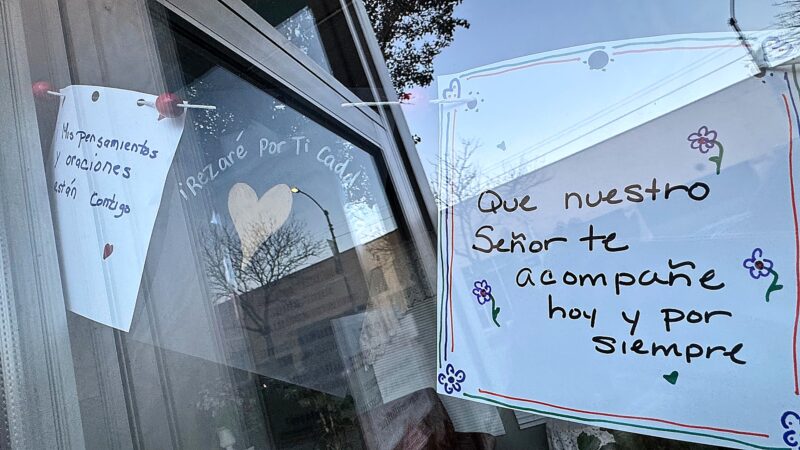 Mis pensamientos
y oraciones
están contigo
¡Rezaré Por Ti Cada
Que nuestro
Señor te
acompañe
hoy y por
siempre